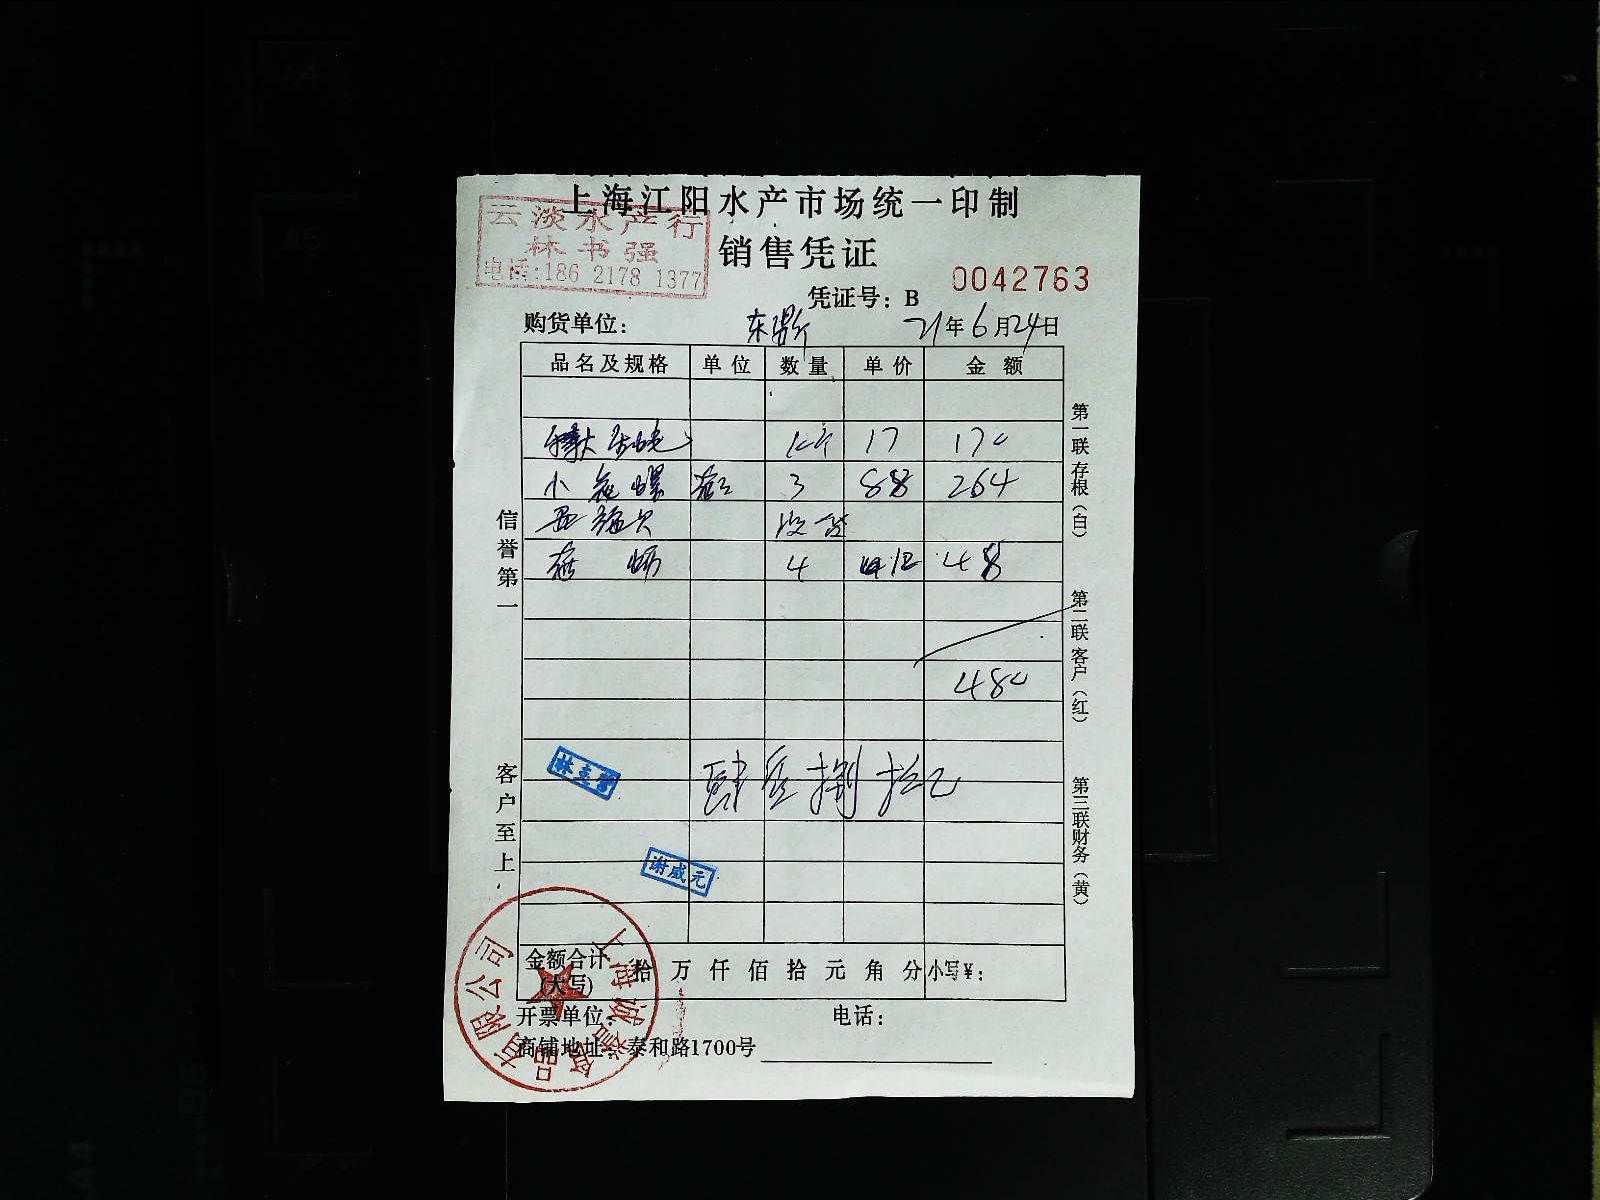 上海江阳水产市场统一印制
云淡水产行
林书强
电话:186 2178 1377
销售凭证
凭证号：B 0042763
购货单位： 21年6月24日
品名及规格 单位 数量 单价 金额
17 170
小花螺 3 88 264
4 12 48
480
肆佰捌拾元
林主管
谢威元
金额合计(大写) 拾 万 仟 佰 拾 元 角 分 小写¥：
开票单位： 电话：
商铺地址：泰和路1700号
信誉第一
客户至上
第一联存根（白）
第二联客户（红）
第三联财务（黄）
上海诚誉食品有限公司